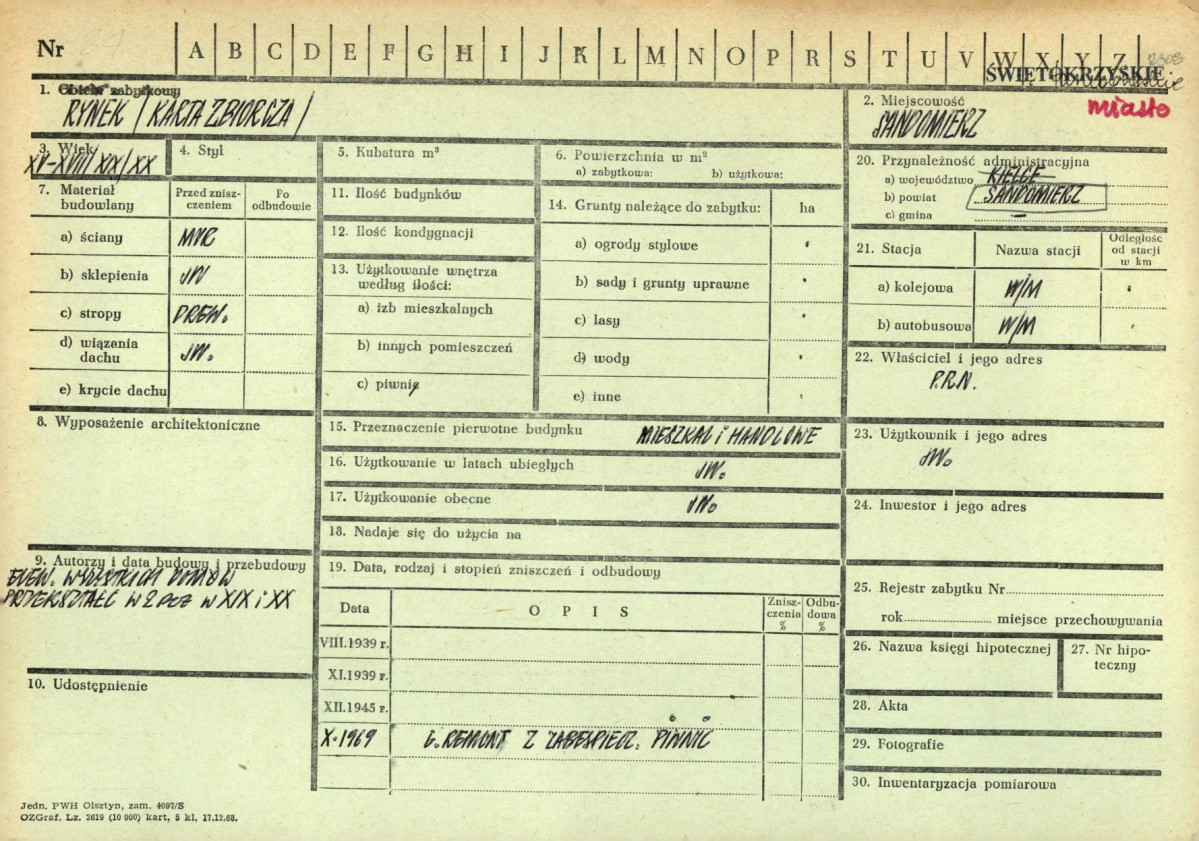 Nr
A B C D E F G H I J K L M N O P R S T U V W X Y Z
ŚWIĘTOKRZYSKIE
1. Obiekt zabytkowy
RYNEK / KARTA ZBIORCZA /
2. Miejscowość
miasto
SANDOMIERZ
3. Wiek
XV-XVIII/XIX/XX
4. Styl
5. Kubatura m³
6. Powierzchnia w m²
a) zabytkowa: b) użytkowa:
20. Przynależność administracyjna
a) województwo KIELCE
b) powiat SANDOMIERZ
c) gmina —
7. Materiał budowlany
Przed zniszczeniem
Po odbudowie
a) ściany MUR
b) sklepienia JW
c) stropy DREW.
d) wiązania dachu JW.
e) krycie dachu
11. Ilość budynków
12. Ilość kondygnacji
13. Użytkowanie wnętrza
według ilości:
a) izb mieszkalnych
b) innych pomieszczeń
c) piwnic
14. Grunty należące do zabytku: ha
a) ogrody stylowe
b) sady i grunty uprawne
c) lasy
d) wody
e) inne
21. Stacja Nazwa stacji
Odległość
od stacji
w km
a) kolejowa W/M
b) autobusowa W/M
22. Właściciel i jego adres
P.R.N.
8. Wyposażenie architektoniczne
15. Przeznaczenie pierwotne budynku MIESZKAL i HANDLOWE
16. Użytkowanie w latach ubiegłych JW.
17. Użytkowanie obecne JW.
18. Nadaje się do użycia na
23. Użytkownik i jego adres
JW.
24. Inwestor i jego adres
9. Autorzy i data budowy i przebudowy
ELEW. WSZYSTKICH DOMÓW
PRZEKSZTAŁC W 2 POŁ W XIX i XX
19. Data, rodzaj i stopień zniszczeń i odbudowy
Data O P I S
Zniszczenia %
Odbudowa %
VIII.1939 r.
XI.1939 r.
XII.1945 r.
X.1969 G. REMONT Z ZABESPIECZ. PIWNIC
25. Rejestr zabytku Nr
rok miejsce przechowywania
26. Nazwa księgi hipotecznej
27. Nr hipoteczny
10. Udostępnienie
28. Akta
29. Fotografie
30. Inwentaryzacja pomiarowa
Jedn. PWH Olsztyn, zam. 4097/S
OZGraf. Lz. 2619 (10 000) kart. 5 kl. 17.12.68.